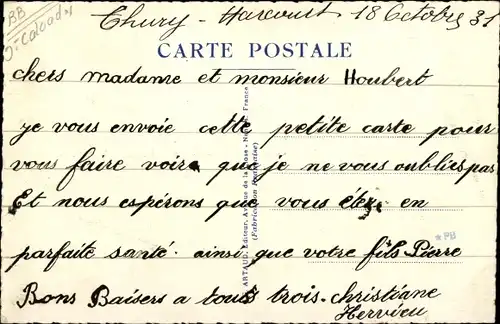 BB
Thury-Harcourt 18 Octobre 31
CARTE POSTALE
chers madame et monsieur Houbert
je vous envoie cette petite carte pour
vous faire voir que je ne vous oublies pas
Et nous espérons que vous êtes en
parfaite santé. ainsi que votre fils Pierre
Bons Baisers a tous trois. christiane
Hervieu
*PB
ARTAUD, Editeur, Avenue de la Rose - Nantes, France